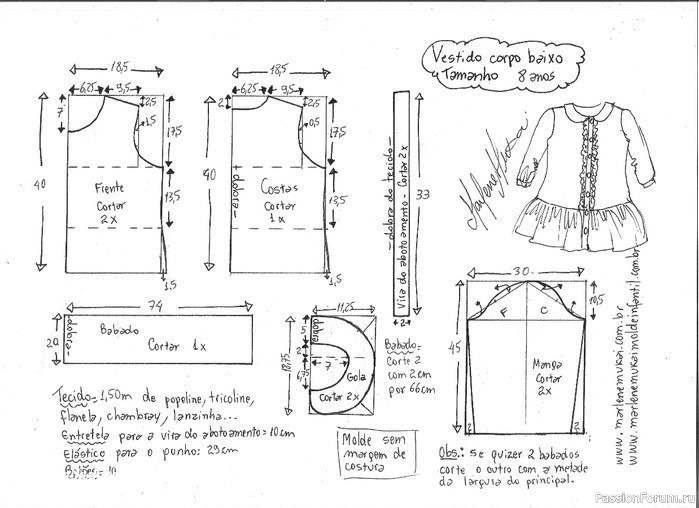 Vestido corpo baixo
Tamanho 8 anos
18,5
6,25
9,5
7
2,5
1,5
17,5
40
Frente
Cortar
2x
13,5
1,5
18,5
6,25
9,5
2
2,5
0,5
17,5
40
dobra
Costas
Cortar
1x
13,5
1,5
dobra do tecido
Vira do abotoamento - Cortar 2x
33
2
74
20
dobra
Babado
Cortar 1x
11,25
dobra
5
2
7
6,75
18,75
Gola
Cortar 2x
Babado=
Corte 2
com 2cm
por 66cm
30
10,5
F
C
45
Manga
Cortar
2x
2
2
www.marlenemukai.com.br
www.marlenemukaimoldeinfantil.com.br
Tecido=1,50m de popeline, tricoline,
flanela, chambray, lanzinha...
Entretela para a vira do abotoamento=10cm
Elástico para o punho=23cm
Molde sem
margem de
costura
Obs.: Se quizer 2 babados
corte o outro com a metade
da largura do principal.
PassionForum.ru